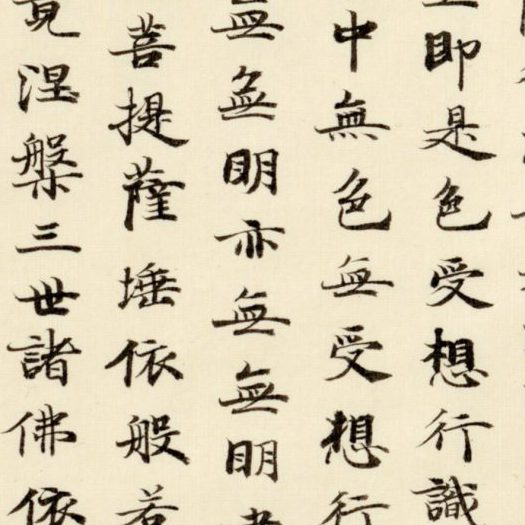 即是色受想行識
中無色無受想行
無無明亦無無明
菩提薩埵依般若
竟涅槃三世諸佛依